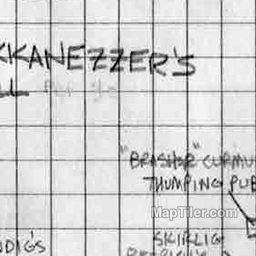 KKANEZZER'S
LL
"BRASHER" CURMU
THUMPING PUB
MapTiler.com
NDIG'S
SKIRLIG